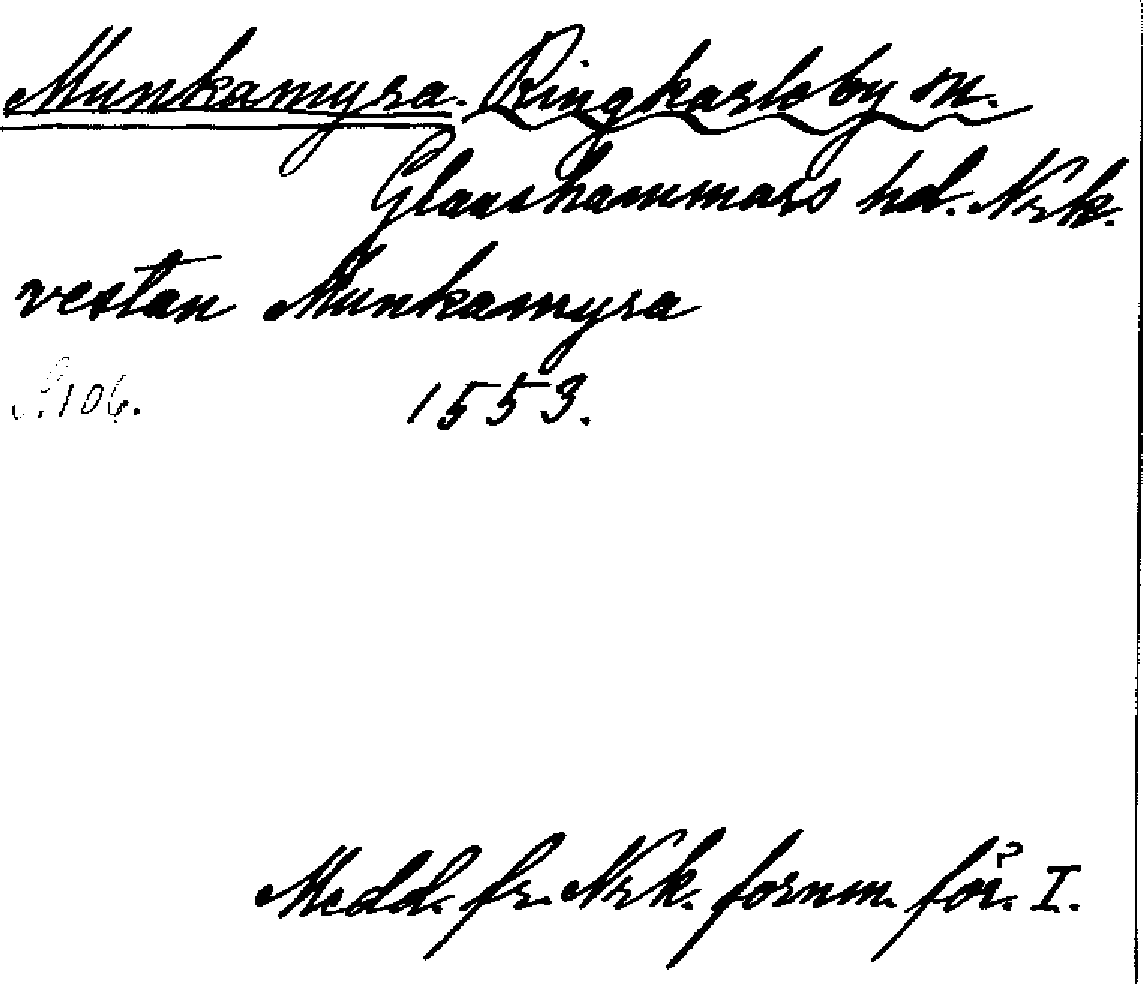 Munkamyra. Ringkarleby sn.
Glanshammars hd. Nrk.
vestan Munkamyra
S. 106. 1553.
Medd. fr. Nrk. fornm. för. I.